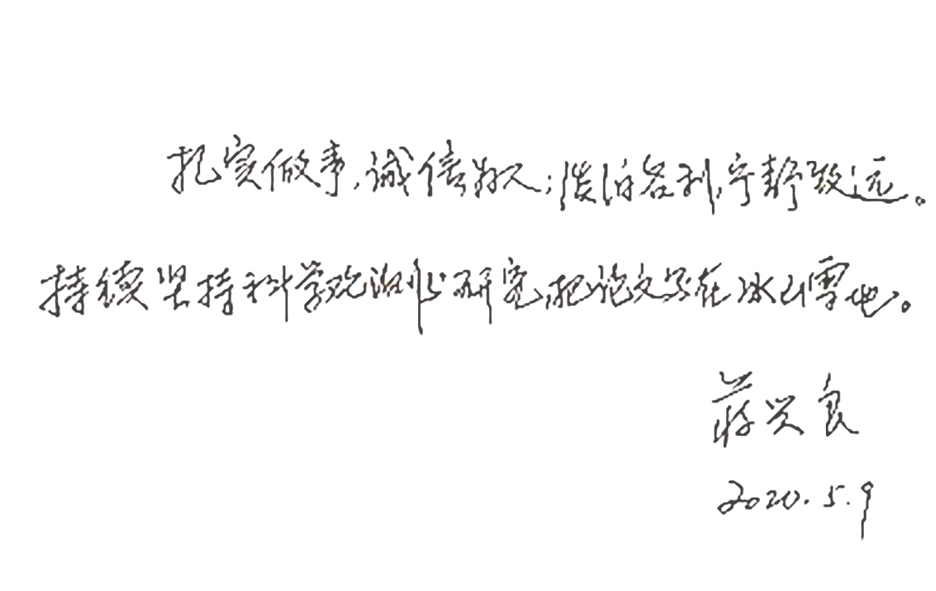 扎实做事,诚信为人;淡泊名利,宁静致远。
持续坚持科学观测与研究,把论文写在冰山雪地。
蒋兴良
2020.5.9